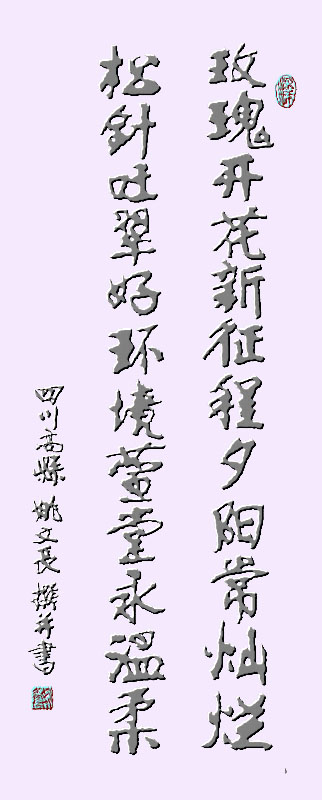 玫瑰开花新征程夕阳常灿烂
松针吐翠好环境萱堂永温柔
四川高縣 姚文長 撰并書